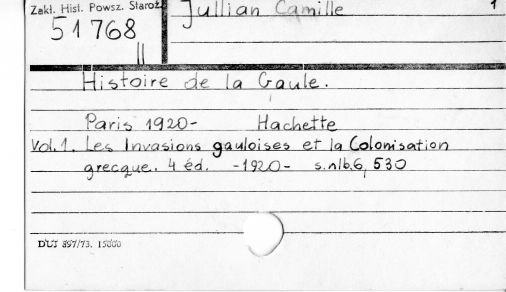 Zakł. Hist. Powsz. Staroż.
51768
II
Jullian Camille
1
Histoire de la Gaule.
Paris 1920- Hachette
Vol. 1. Les Invasions gauloises et la Colonisation
grecque. 4 éd. -1920- s.nlb.6, 530
DUJ 897/73. 15000